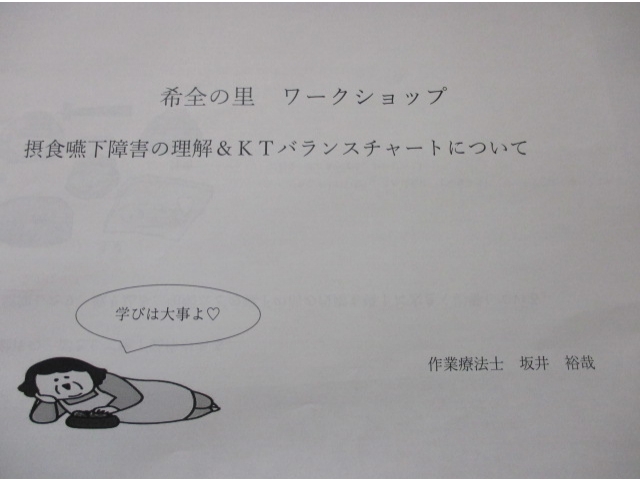 希全の里　ワークショップ
摂食嚥下障害の理解＆ＫＴバランスチャートについて
学びは大事よ♡
作業療法士　坂井　裕哉